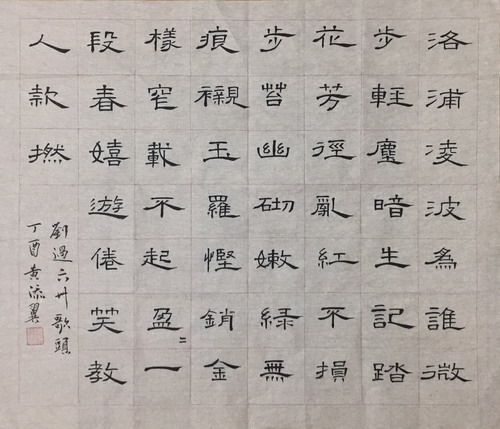 洛浦凌波為誰微
步輕塵暗生記踏
花芳徑亂紅不損
步苔幽砌嫩綠無
痕襯玉羅慳銷金
樣窄載不起盈〻一
段春嬉遊倦笑教
人款撚
劉過六州歌頭
丁酉黃添翼